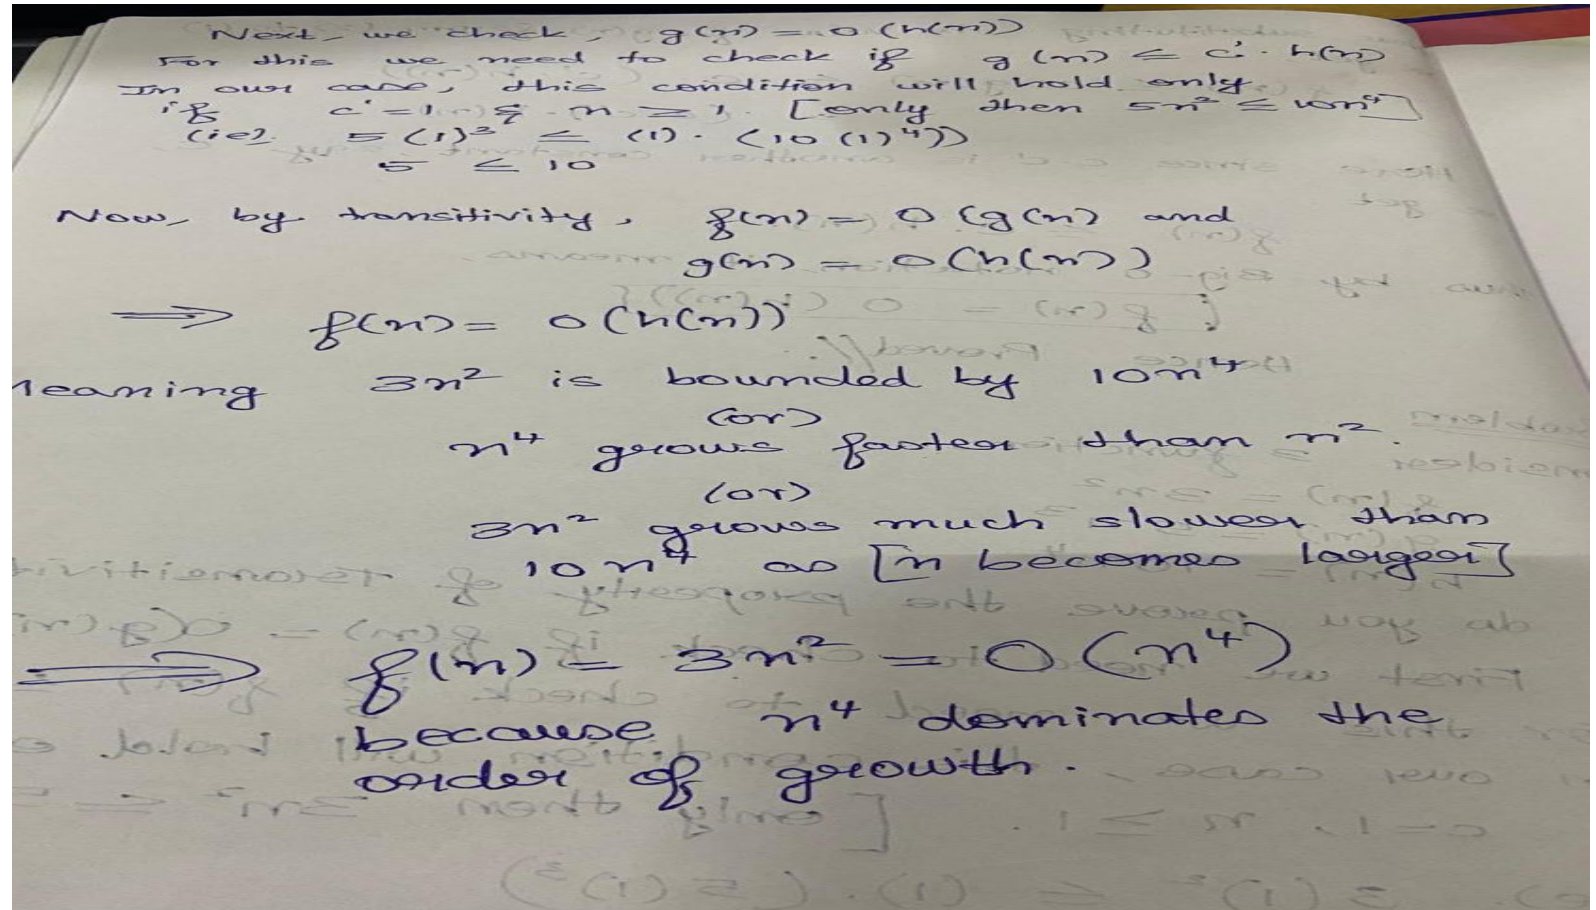 Next, we check, g(n) = O(h(n))
For this we need to check if g(n) ≤ c'. h(n)
In our case, this condition will hold only
if c'=1 & n ≥ 1. [only then 5n² ≤ 10n⁴]
(ie). 5(1)² ≤ (1). (10(1)⁴))
5 ≤ 10
Now, by transitivity, f(n) = O(g(n) and
g(n) = O(h(n))
⟹ f(n) = O(h(n))
leaning 3n² is bounded by 10n⁴
(or)
n⁴ grows faster than n².
(or)
3n² grows much slower than
10n⁴ as [n becomes larger]
⟹ f(n) = 3n² = O(n⁴)
because n⁴ dominates the
order of growth.